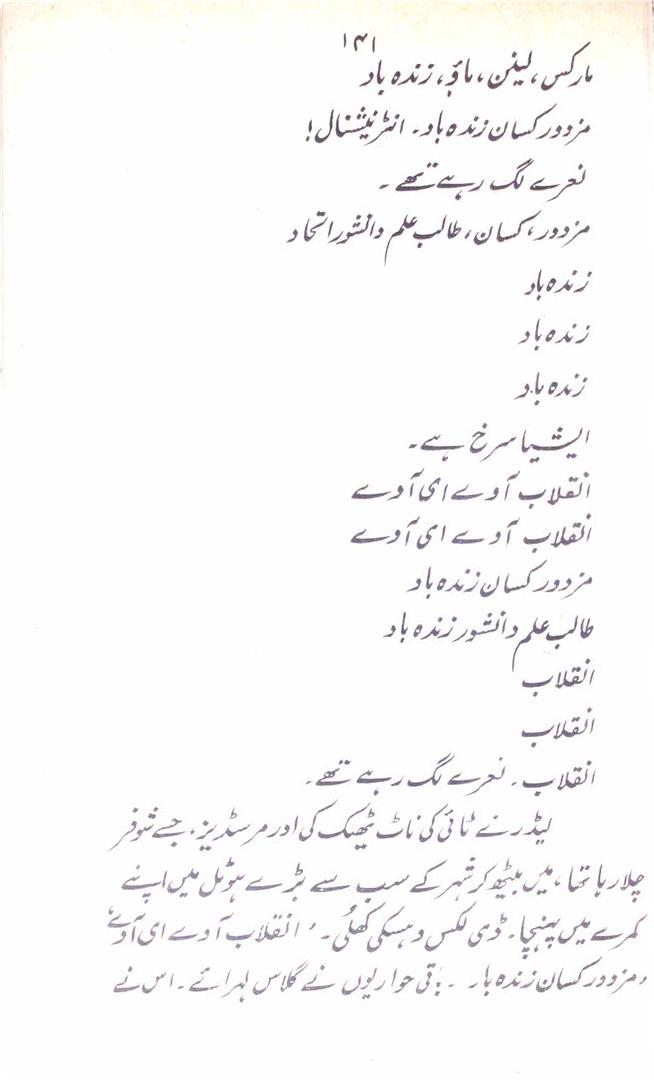 ۱۴۱
مارکس، لینن، ماؤ، زندہ باد
مزدور کسان زندہ باد۔ انٹرنیشنال!
نعرے لگ رہے تھے۔
مزدور، کسان، طالب علم دانشور اتحاد
زندہ باد
زندہ باد
زندہ باد
ایشیا سرخ ہے۔
انقلاب آوے ای آوے
انقلاب آوے ای آوے
مزدور کسان زندہ باد
طالب علم دانشور زندہ باد
انقلاب
انقلاب
انقلاب۔ نعرے لگ رہے تھے۔
لیڈر نے ٹائی کی ناٹ ٹھیک کی اور مرسڈیز، جسے شوفر
چلا رہا تھا، میں بیٹھ کر شہر کے سب سے بڑے ہوٹل میں اپنے
کمرے میں پہنچا۔ ڈی لکس وہسکی کھلی۔ ' انقلاب آوے ای آوے'
'مزدور کسان زندہ با۔ ۔ باقی حواریوں نے گلاس لہرائے۔ اس نے